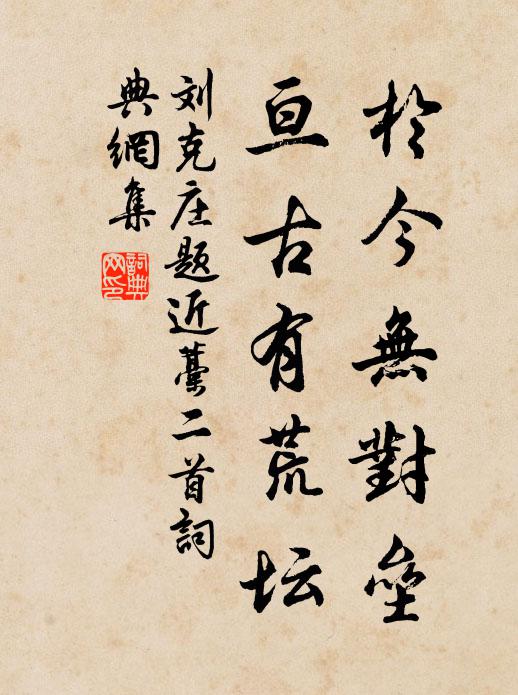 於今無對壘
亘古有荒坛
刘克庄题近藁二首詞
典網集
詞典網印